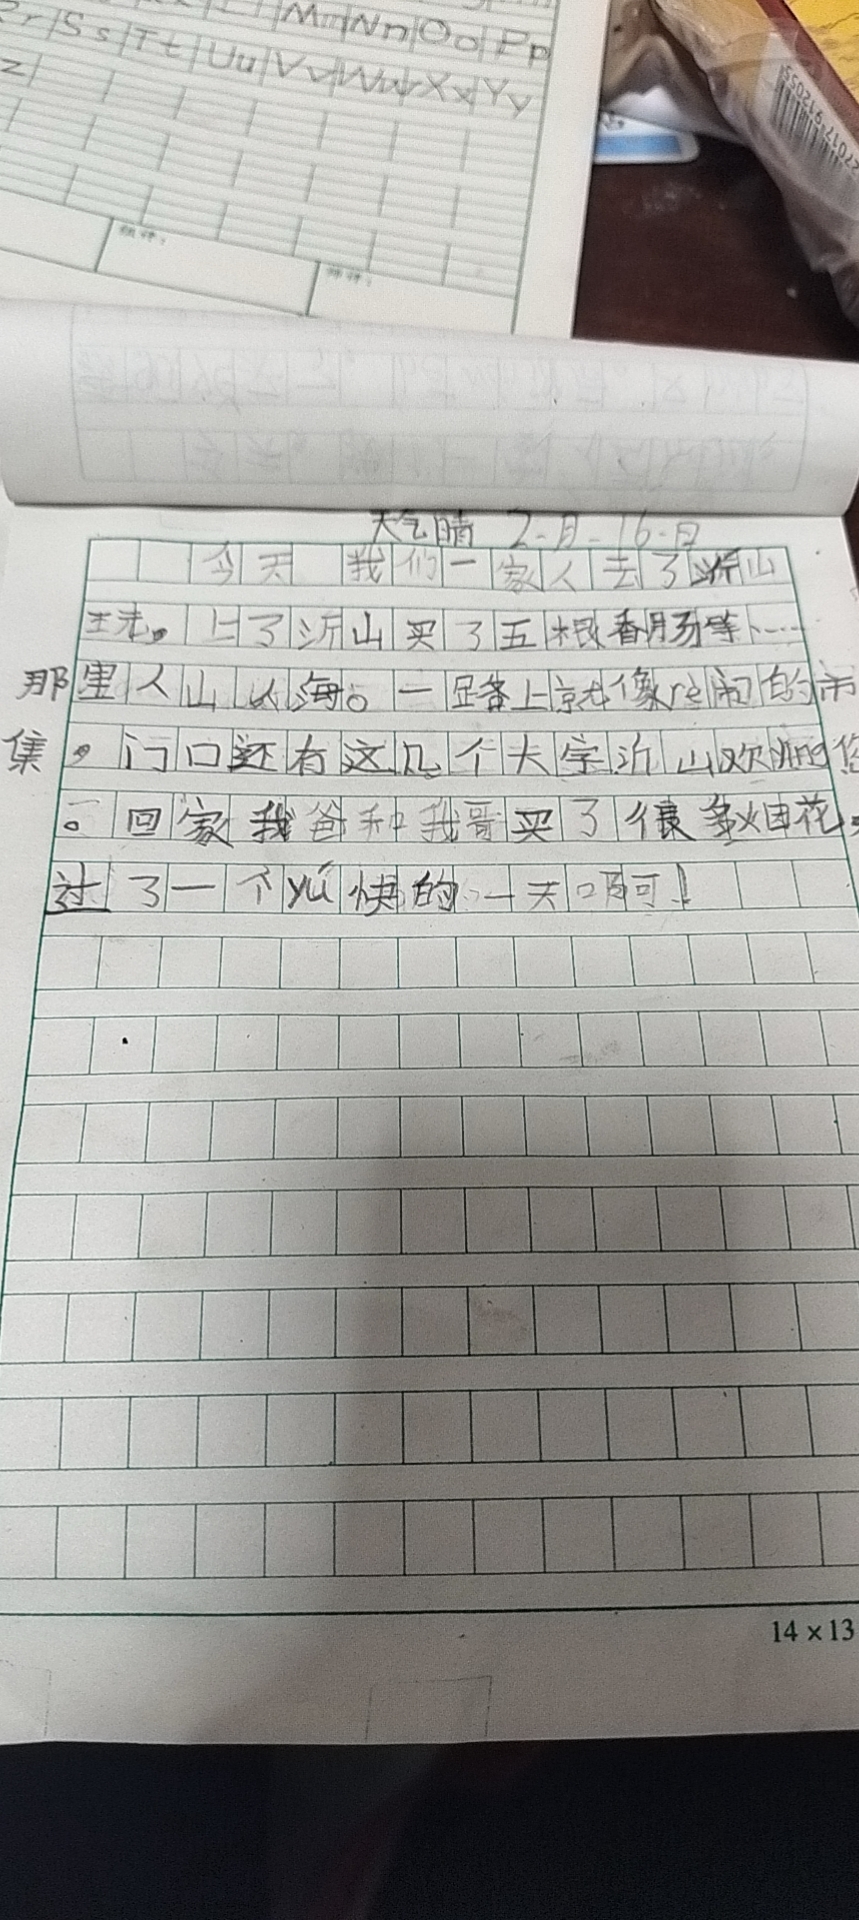 Mm Nn Oo Pp
Ss Tt Uu Vv Ww Xx Yy
z
天气晴 2月16日
今天 我们一家人去了沂山
上了沂山买了五根香肠等……
那里人山人海。一路上就像rè闹的市
集。门口还有这几个大字沂山欢迎您
。回家我爸和我哥买了很多烟花,
过了一个yú快的一天啊!
14×13